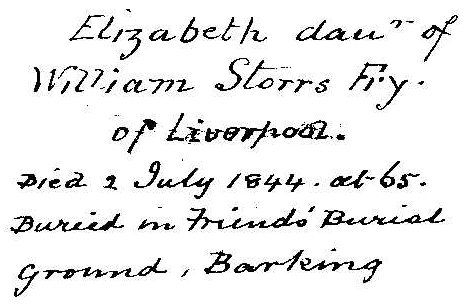 Elizabeth dauʳ of
William Storrs Fry.
of Liverpool.
Died 2 July 1844. at 65.
Buried in Friends' Burial
Ground, Barking